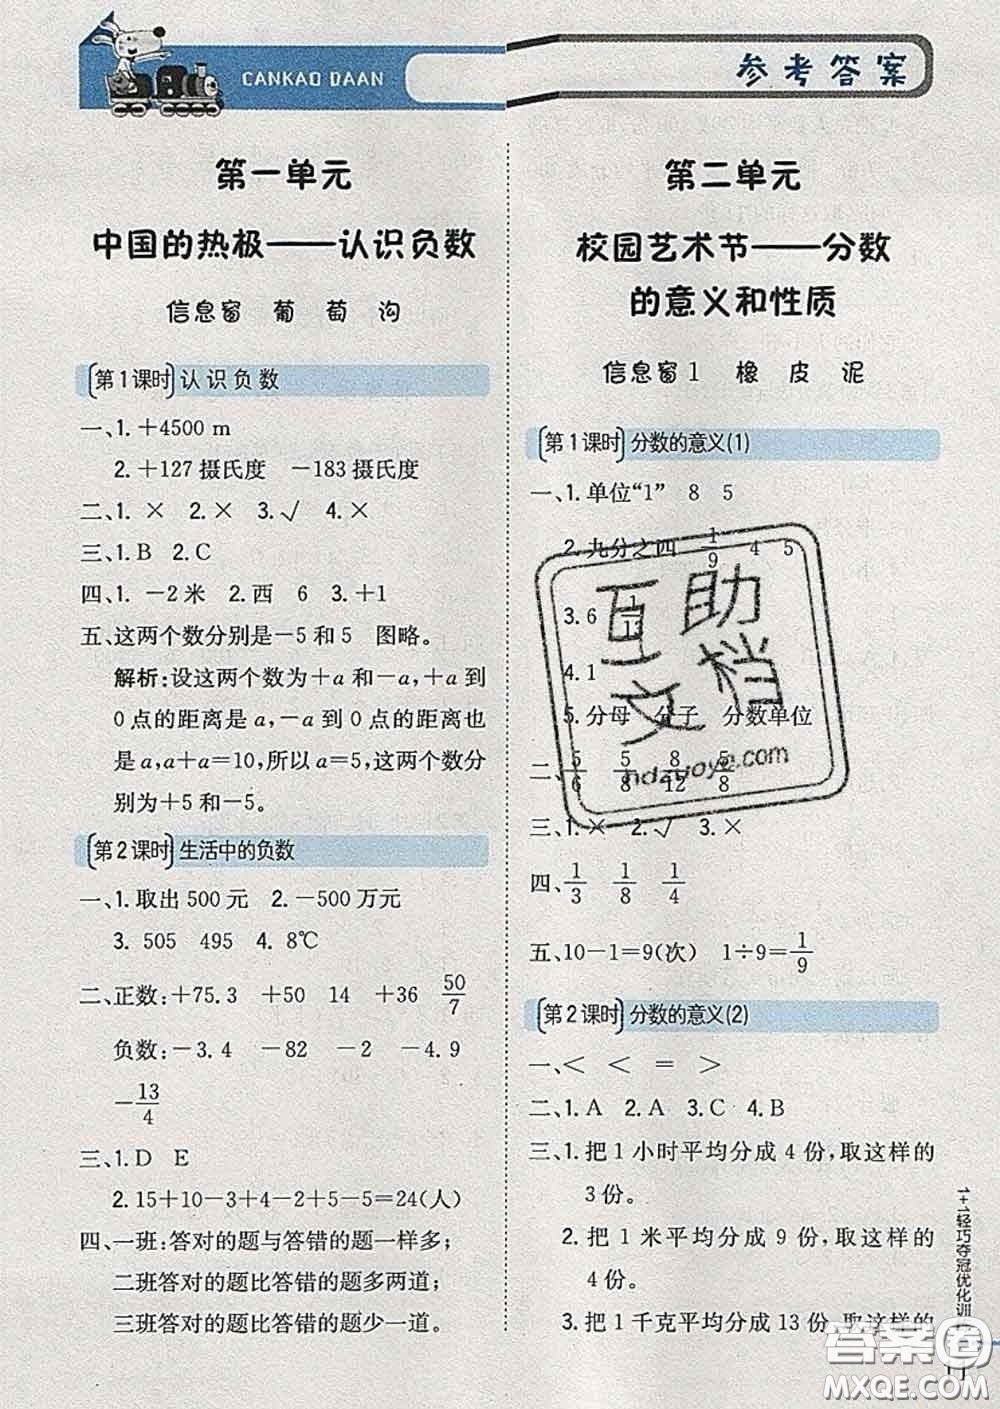 CANKAO DAAN
参考答案
第一单元
中国的热极——认识负数
信息窗 葡萄沟
第1课时 认识负数
一、1. +4500 m
2. +127摄氏度 -183摄氏度
二、1. × 2. × 3. √ 4. ×
三、1. B 2. C
四、1. -2米 2. 西 6 3. +1
五、这两个数分别是-5和5 图略。
解析:设这两个数为+a和-a,+a到
0点的距离是a,-a到0点的距离也
是a,a+a=10,所以a=5,这两个数分
别为+5和-5。
第2课时 生活中的负数
一、1. 取出500元 2. -500万元
3. 505 495 4. 8℃
二、正数:+75.3 +50 14 +36 50/7
负数:-3.4 -82 -2 -4.9
-13/4
三、1. D E
2. 15+10-3+4-2+5-5=24(人)
四、一班:答对的题与答错的题一样多;
二班答对的题比答错的题多两道;
三班答对的题比答错的题少一道。
第二单元
校园艺术节——分数
的意义和性质
信息窗1 橡皮泥
第1课时 分数的意义(1)
一、1. 单位“1” 8 5
2. 九分之四 1/9 4 5
3. 6 1/13
4. 1
5. 分母 分子 分数单位
二、5/6 5/8 8/12 5/8
三、1. × 2. √ 3. ×
四、1/3 1/8 1/4
五、10-1=9(次) 1÷9=1/9
第2课时 分数的意义(2)
一、< < = >
二、1. A 2. A 3. C 4. B
三、1. 把1小时平均分成4份,取这样的
3份。
2. 把1米平均分成9份,取这样的
4份。
3. 把1千克平均分成13份,取这样的
1+1轻巧夺冠优化训
互助
文档
hdzuoye.com
答案圈
MXQE.COM